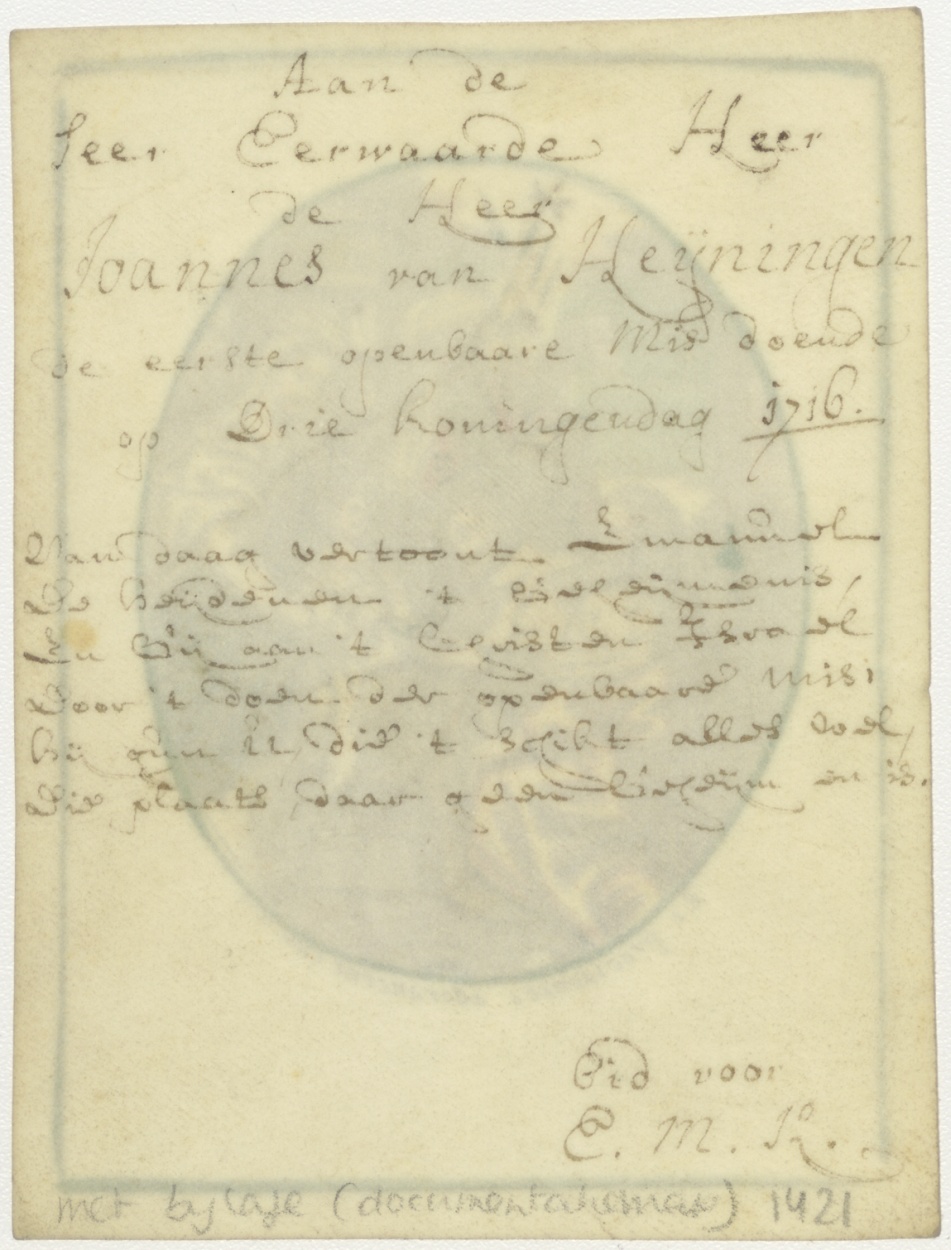 Aan de
Seer Eerwaarde Heer
de Heer
Joannes van Heÿningen
de eerste openbaare Mis doende
op Drie koningendag 1716.
Van daag vertoont Emanuel
De heÿdenen 't geheÿmenis,
En Gÿ aan 't Christen Israel
Door 't doen der openbaare Mis:
hÿ gun U die 't schikt alles wel,
Die plaats daar geen geheÿm en is.
Bid voor
E. M. R.
met bylage (documentatiemap) 1421